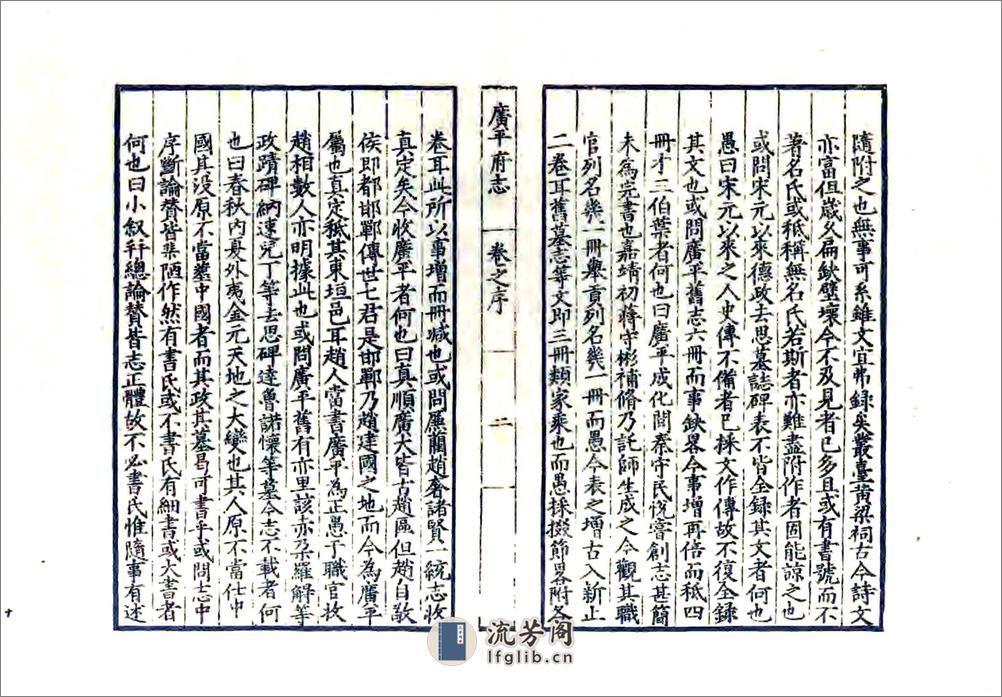 隨附之也無事可系雖文宜弗録矣叢臺黄梁祠古今詩文
亦富但歲久扁鈌壁壞今不及見者已多且或有書號而不
著名氏或秪稱無名氏若斯者亦難盡附作者固能諒之也
或問宋元以來德政去思墓誌碑表不皆全録其文者何也
愚曰宋元以來之人史傳不備者已採文作傳故不復全録
其文也或問廣平舊志六冊而事鈌畧今事增再倍而秪四
冊才三伯葉者何也曰廣平成化間秦守民悅嘗創志甚簡
未為完書也嘉靖初蔣守彬補脩乃託師生成之今觀其職
官列名幾一冊舉貢列名幾一冊而愚今表之增古入新止
二卷耳舊墓志等文即三冊類家乘也而愚採掇節畧附各
廣平府志
卷之序
二
卷耳此所以事增而冊减也或問廉藺趙奢諸賢一統志收
真定矣今收廣平者何也曰真順廣大皆古趙區但趙自敬
侯即都邯鄲傳世七君是邯鄲乃趙建國之地而今為廣平
屬也真定秪其東垣邑耳趙人當書廣平為正愚于職官收
趙相數人亦明據此也或問廣平舊有亦里該赤朶羅解等
政蹟碑納速兒丁等去思碑達魯諾懷等墓今志不載者何
也曰春秋内夏外夷金元天地之大變也其人原不當仕中
國其没原不當塟中國者而其政其墓曷可書乎或問志中
序斷論贊皆集陋作然有書氏或不書氏有細書或大書者
何也曰小叙幷總論贊皆志正體故不必書氏惟隨事有述
流芳阁
lfglib.cn